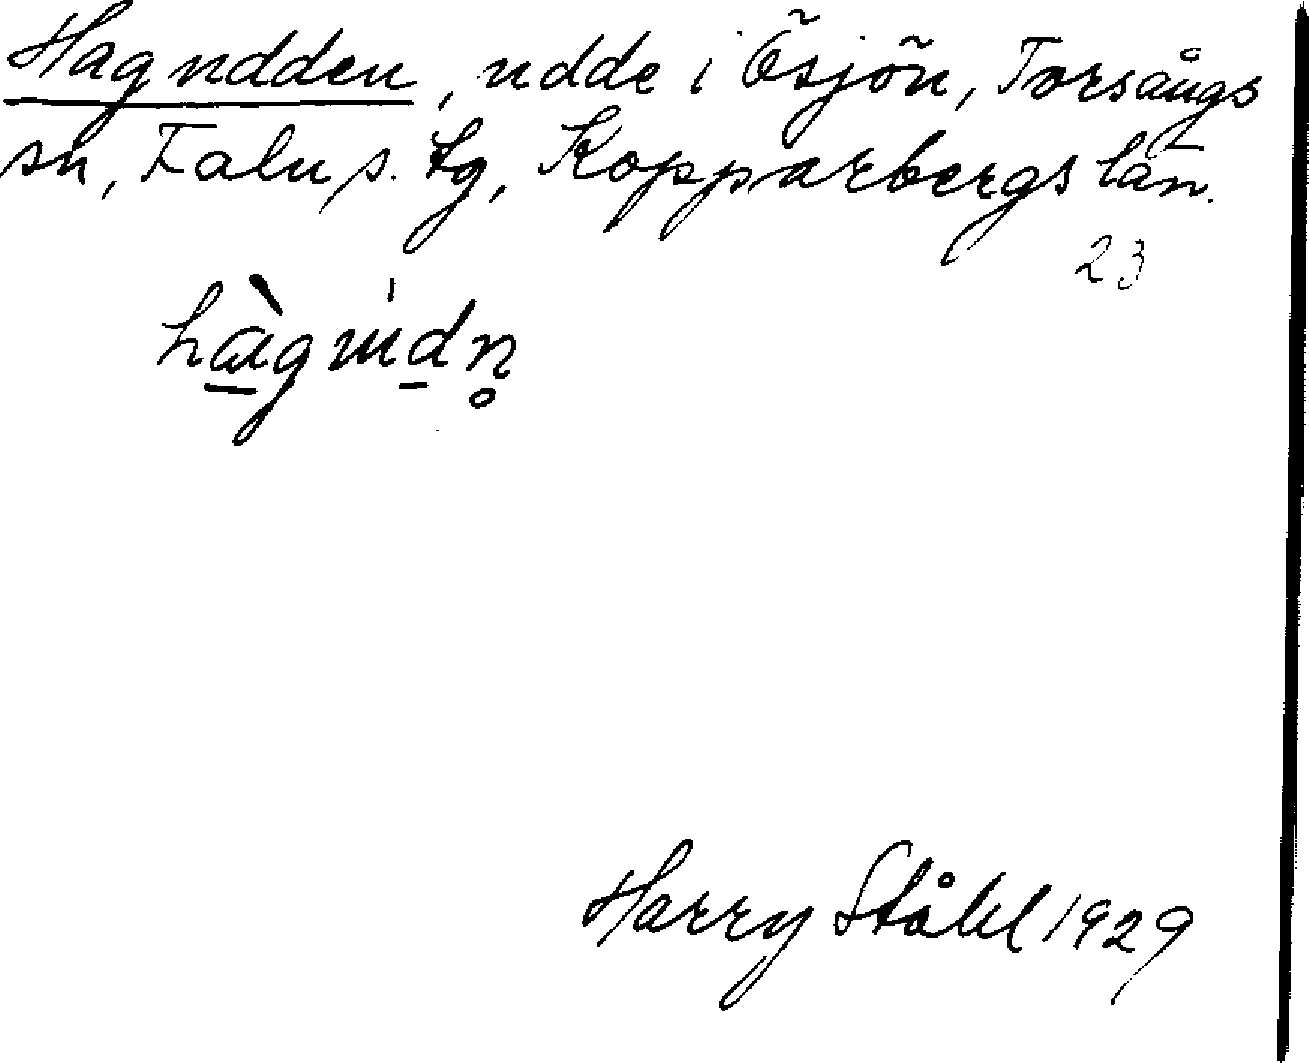 Hagudden, udde i Ösjön, Torsångs
sn, Falu s. tg, Kopparbergs län.
23
Harry Ståhl 1929